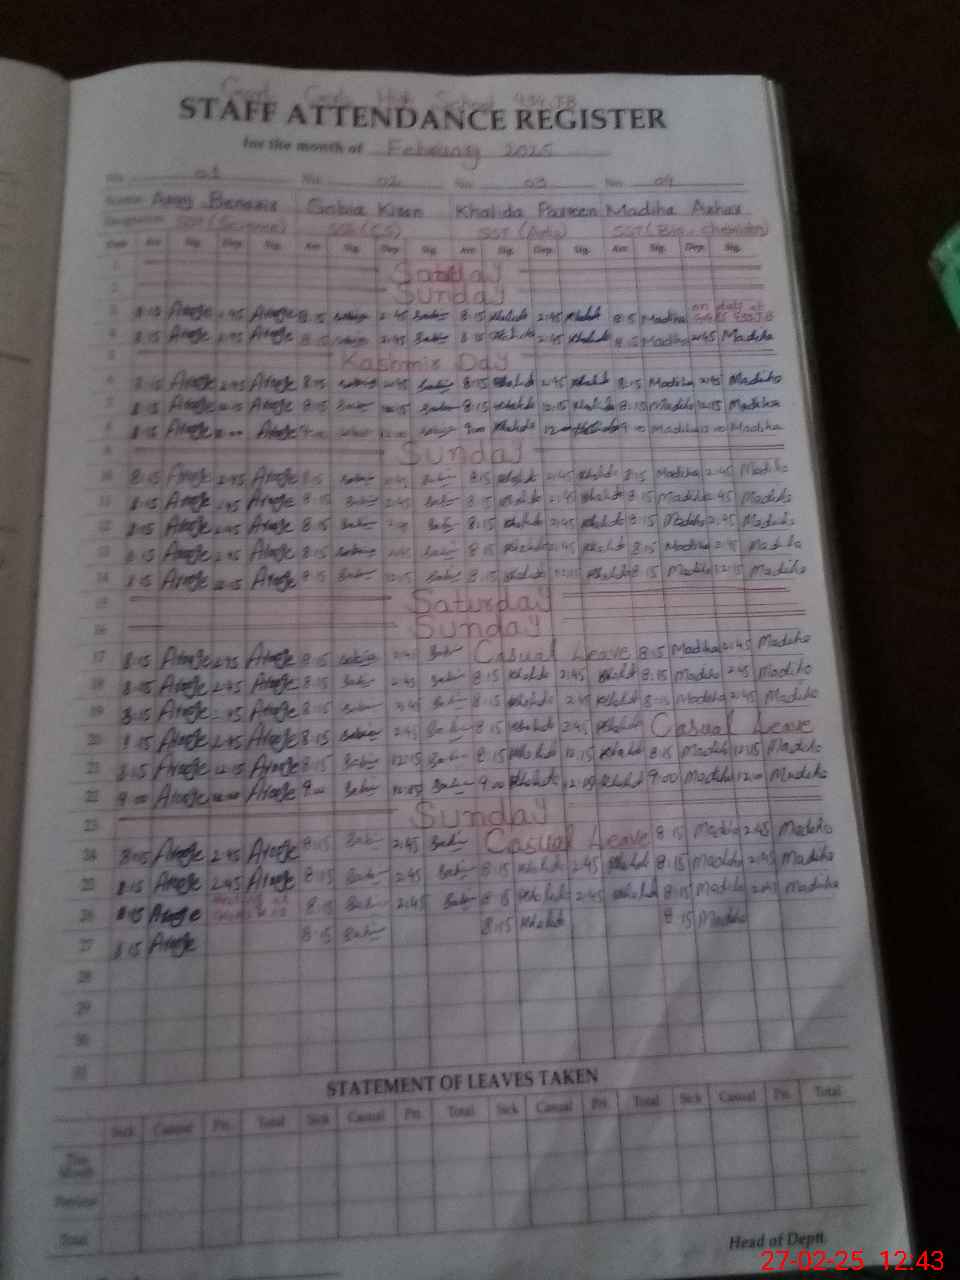 Govt. Girls High School 434 JB
STAFF ATTENDANCE REGISTER
for the month of February 2025
No. 01 No. 02 No. 03 No. 04
Name Arooj Benazir Sabia Kiran Khalida Parveen Madiha Azhar
Designation SST (Science) SST (CS) SST (Arts) SST (Bio-Chemistry)
Date Arr. Sig. Dep. Sig. Arr. Sig. Dep. Sig. Arr. Sig. Dep. Sig. Arr. Sig. Dep. Sig.
1 Saturday
2 Sunday
3 8:15 Arooje 2:45 Arooje 8:15 Sabia 2:45 Sabia 8:15 Khalida 2:45 Khalida 8:15 Madiha on duty at
4 8:15 Arooje 2:45 Arooje 8:15 Sabia 2:45 Sabia 8:15 Khalida 2:45 Khalida 8:15 Madiha 2:45 Madiha
5 Kashmir Day
6 8:15 Arooje 2:45 Arooje 8:15 Sabia 2:45 Sabia 8:15 Khalida 2:45 Khalida 8:15 Madiha 2:45 Madiha
7 8:15 Arooje 12:15 Arooje 8:15 Sabia 12:15 Sabia 8:15 Khalida 12:15 Khalida 8:15 Madiha 12:15 Madiha
8 Arooje Arooje 9:00 Sabia 12:00 Sabia 9:00 Khalida 12:00 Khalida 9:00 Madiha 12:00 Madiha
9 Sunday
10 8:15 Arooje 2:45 Arooje 8:15 Sabia 2:45 Sabia 8:15 Khalida 2:45 Khalida 8:15 Madiha 2:45 Madiha
11 8:15 Arooje 2:45 Arooje 8:15 Sabia 2:45 Sabia 8:15 Khalida 2:45 Khalida 8:15 Madiha 2:45 Madiha
12 8:15 Arooje 2:45 Arooje 8:15 Sabia Sabia 8:15 Khalida 2:45 Khalida 8:15 Madiha 2:45 Madiha
13 8:15 Arooje 2:45 Arooje 8:15 Sabia 2:45 Sabia 8:15 Khalida 2:45 Khalida 8:15 Madiha 2:45 Madiha
14 8:15 Arooje 12:15 Arooje 8:15 Sabia 12:15 Sabia 8:15 Khalida 12:15 Khalida 8:15 Madiha 12:15 Madiha
15 Saturday
16 Sunday
17 8:15 Arooje 2:45 Arooje 8:15 Sabia 2:45 Sabia Casual Leave 8:15 Madiha 2:45 Madiha
18 8:15 Arooje 2:45 Arooje 8:15 Sabia 2:45 Sabia 8:15 Khalida 2:45 Khalida 8:15 Madiha 2:45 Madiha
19 8:15 Arooje 2:45 Arooje 8:15 Sabia 2:45 Sabia 8:15 Khalida 2:45 Khalida 8:15 Madiha 2:45 Madiha
20 8:15 Arooje 2:45 Arooje 8:15 Sabia 2:45 Sabia 8:15 Khalida 2:45 Khalida Casual Leave
21 8:15 Arooje 12:15 Arooje 8:15 Sabia 12:15 Sabia 8:15 Khalida 12:15 Khalida 8:15 Madiha 12:15 Madiha
22 9:00 Arooje Arooje 9:00 Sabia Sabia 9:00 Khalida Khalida 9:00 Madiha 12:00 Madiha
23 Sunday
24 8:15 Arooje 2:45 Arooje 8:15 Sabia 2:45 Sabia Casual Leave 8:15 Madiha 2:45 Madiha
25 8:15 Arooje 2:45 Arooje 8:15 Sabia 2:45 Sabia 8:15 Khalida 2:45 Khalida 8:15 Madiha 2:45 Madiha
26 8:15 Arooje 8:15 Sabia 2:45 Sabia 8:15 Khalida 2:45 Khalida 8:15 Madiha 2:45 Madiha
27 8:15 Arooje 8:15 Sabia 8:15 Khalida 8:15 Madiha
28
29
30
31
STATEMENT OF LEAVES TAKEN
Sick Casual Pri. Total Sick Casual Pri. Total Sick Casual Pri. Total Sick Casual Pri. Total
This Month
Previous
Total
Head of Deptt.
27-02-25 12:43